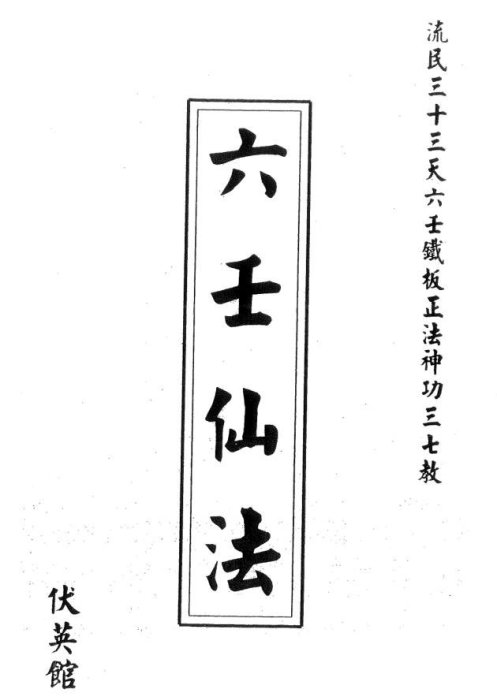 流民三十三天六壬鐵板正法神功三七教
六壬仙法
伏英館